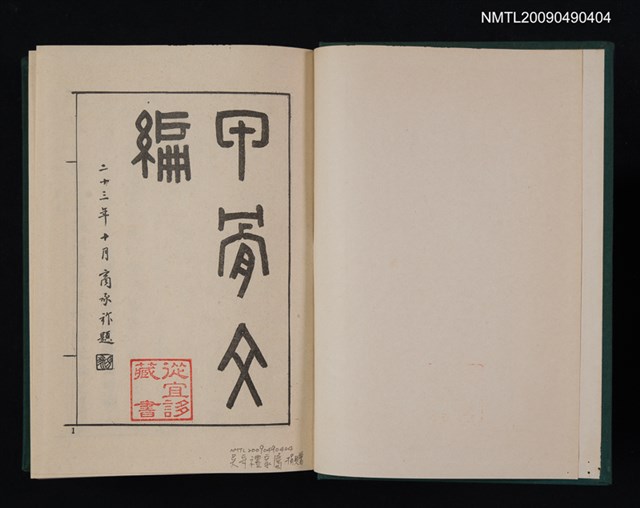 NMTL20090490404
甲骨文
編
二十三年十月商承祚題
從宜誃
藏書
1
NMTL20090490404